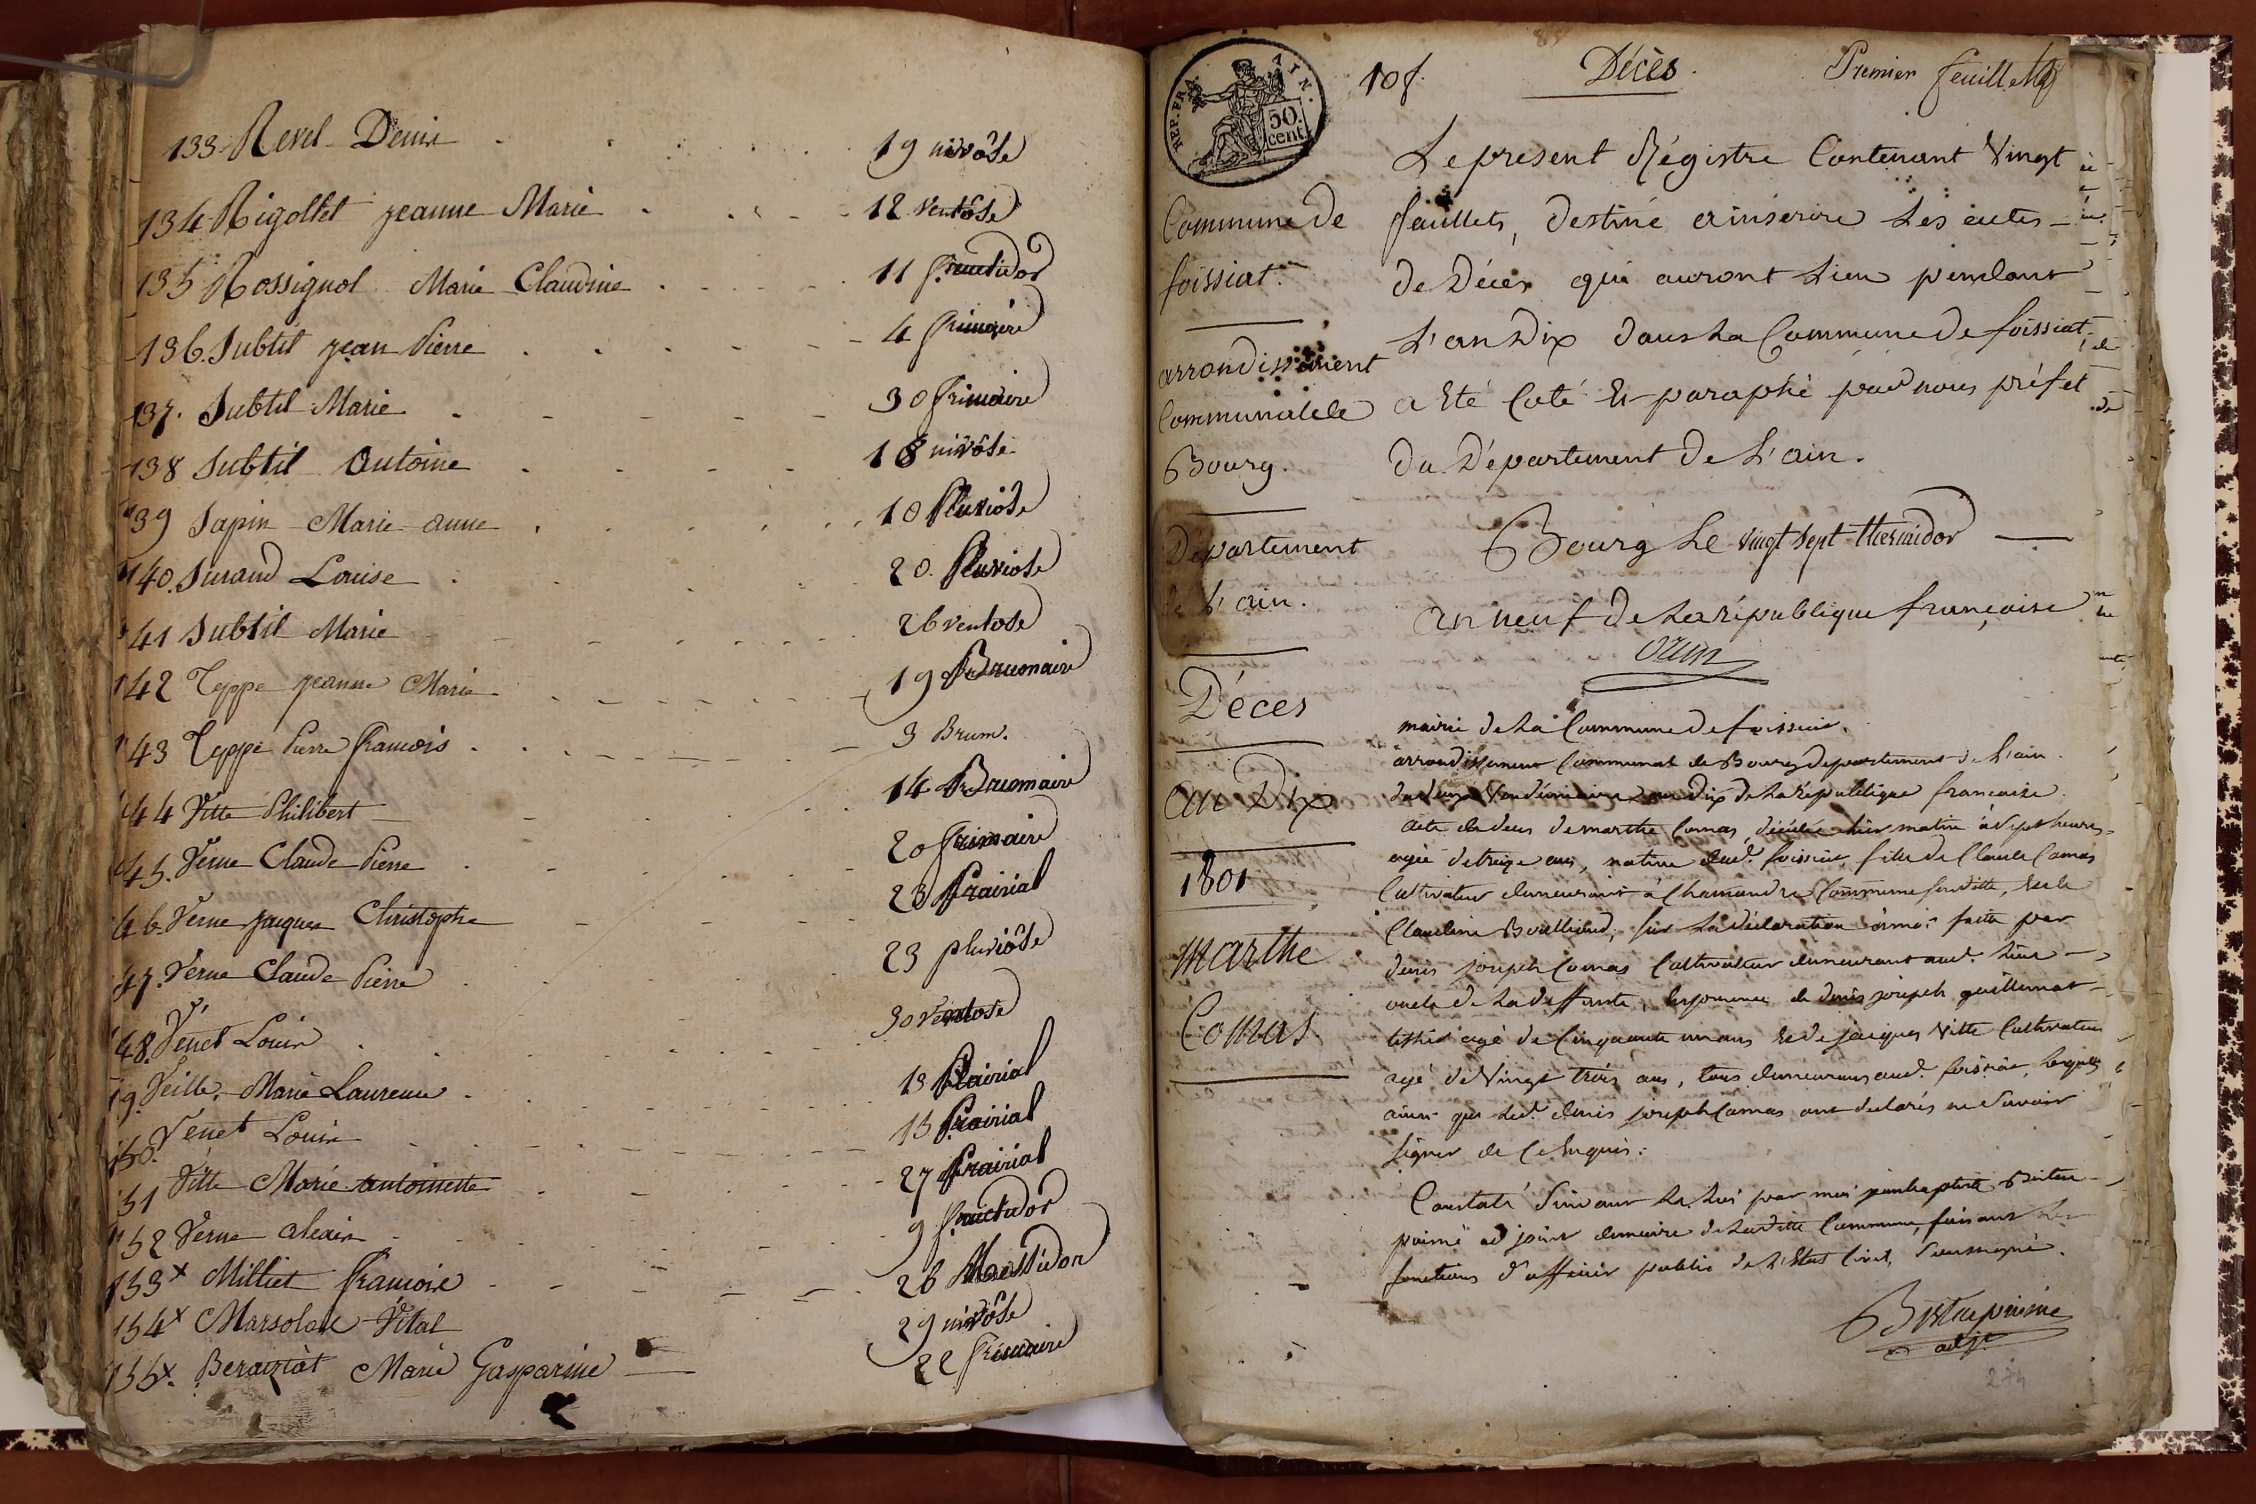 133 Revel Denis 19 nivôse
134 Rigollet jeanne Marie 12 Ventôse
135 Rossignol Marie Claudine 11 fructidor
136. Subtil jean Pierre 4 frimaire
137. Subtil Marie 30 frimaire
138 Subtil Antoine 18 nivôse
139 Sapin Marie anne 10 Pluviôse
140. Surand Louise 20. Pluviose
141 Subtil Marie 26 ventose
142 Teppe jeanne Marie 19 Brumaire
143 Teppe Pierre françois 3 Brum.
144 Vitte Philibert 14 Brumaire
145. Verne Claude Pierre 20 frimaire
146. Verne jacques Christophe 28 Prairial
147. Verne Claude Pierre 23 pluviôse
148. Venet Louis 30 Ventose
149. Veille Marie Laurence 13 Prairial
150. Venet Louis 15 Prairial
151 Vitte Marie antoinette 27 Prairial
152 Verne alexis 9 fructidor
153x Milliet francois 26 Messidor
154x Marsolat Vital 29 nivôse
155x. Beraiziat Marie Gasparine 22 frimaire
REP. FRA. AIN.
50. cent.
10f. Décès. Premier feuillet
Commune de
foissiat.
arrondissement
Communal de
Bourg.
Département
de L'ain.
Décès
an Dix
1801
Marthe
Comas
Le present Régistre Contenant Vingt
feuillets, destiné a inscrire Les actes
de Décès qui auront Lieu pendant
L'an Dix dans La Commune de foissiat,
a Eté Coté Et paraphé par nous préfet
du Département de L'ain.
Bourg Le vingt sept thermidor
an neuf de La république françoise
Ozun
mairie de La Commune de foissiat.
arrondissement Communal de Bourg departement de L'ain.
du deux Vendémiaire an dix de La République francaise.
acte de deces de marthe Comas, décédée hier matin à Sept heures
agée de treize ans, native dud. foissiat, fille de Claude Comas
Cultivateur demeurant à Chamandre Commune susditte, et de
Claudine Boulliard, sur La déclaration à moi faite par
denis joseph Comas Cultivateur demeurant aud. Lieu
oncle de La deffunte, En presence de denis joseph guillermot
agé de Cinquante un ans Et de jacques Vitte Cultivateur
agé de Vingt trois ans, tous demeurans aud. foissiat, Lesquels
ainsi que Led. denis joseph Comas ont declarés ne Savoir
signer de Ce Enquis.
Constaté Suivant La Loi par moi jean baptiste
adjoint du maire de Laditte Commune, faisant Les
fonctions d'officier public de L'Etat Civil, Soussigné.
adjt.
274